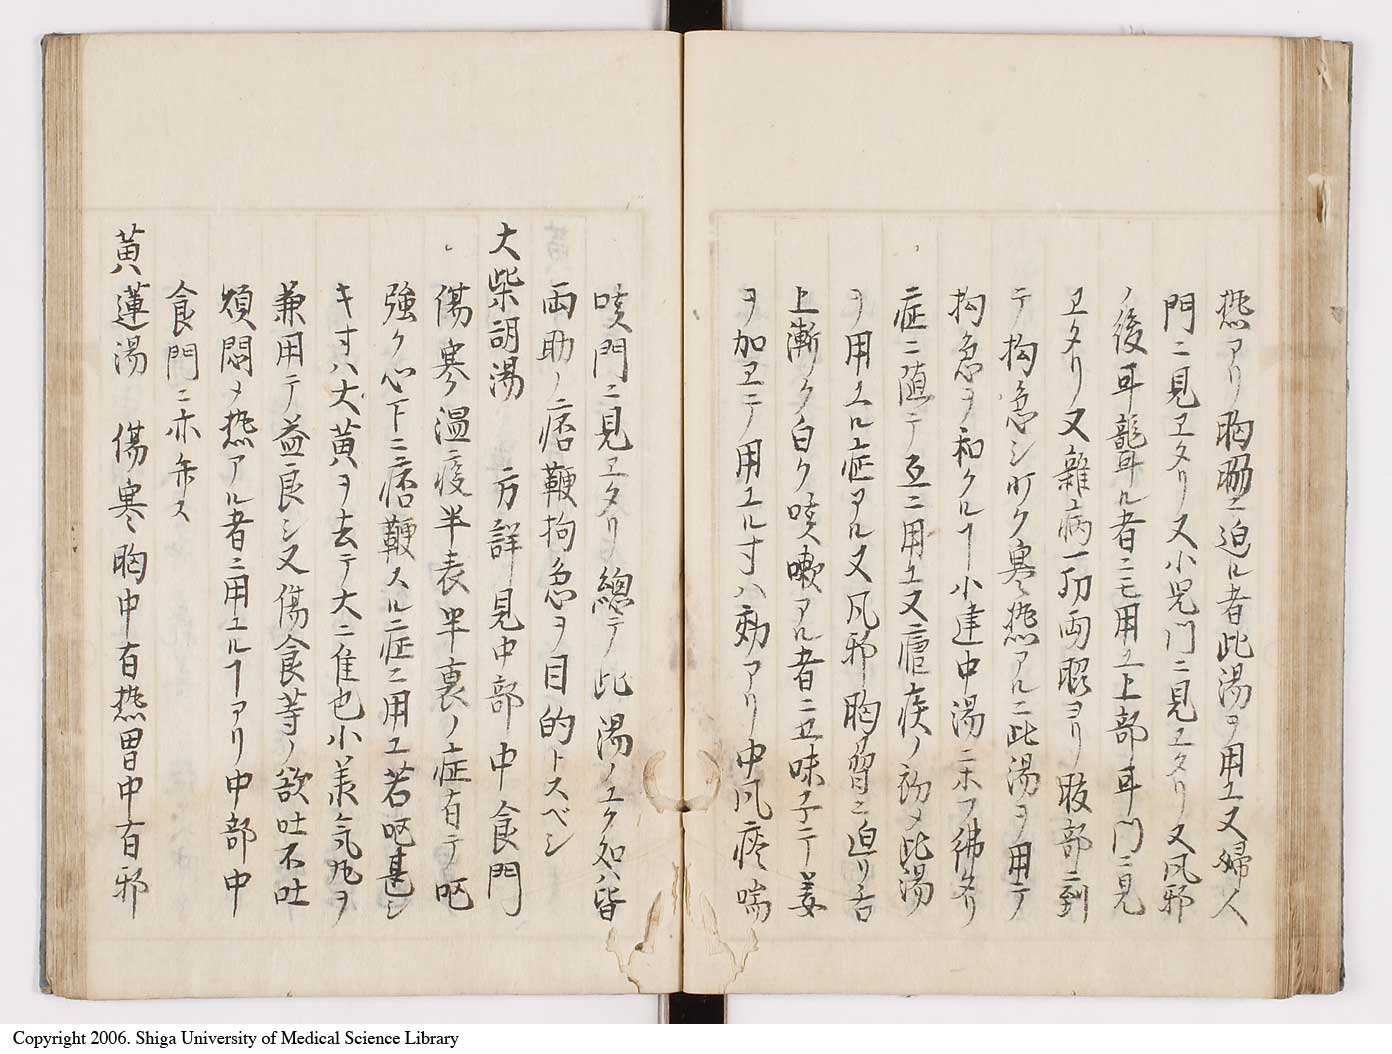 熱アリ胸脇ニ迫ル者此湯ヲ用ユ又婦人
門ニ見ヱタリ又小児門ニ見ユタリ又風邪
ノ後耳聾ル者ニモ用ユ上部ノ耳門ニ見
ヱタリ又雜病一切両ヨリ肢部ニ到
テ拘急シ寒熱アルニ此湯ヲ用テ
拘急ヲ和クルヿ小建中湯ニ彿タリ
症ニ随テ互ニ用ユ又瘧疾ノ初メ此湯
ヲ用ユル症アル又風邪胸ニ迫リ舌
上漸ク白ク咳嗽アル者ニ五味子干姜
ヲ加ヱテ用ユル寸ハ効アリ中風痰喘
咳門ニ見ヱタリ總テ此湯ノユク処ハ皆
両肋ノ痞鞕拘急ヲ目的トスベシ
大柴胡湯 方詳見中部中食門
傷寒温疫半表半裏ノ症有テ嘔
強ク心下ニ痞鞕スル症ニ用ユ若嘔甚シ
キ寸ハ大黄ヲ去テ大ニ佳也小承気丸ヲ
兼用テ益良シ又傷食等ノ欲吐不吐
煩悶メ熱アル者ニ用ユルヿアリ中部中
食門ニ亦弁ス
黄蓮湯 傷寒胸中有熱胃中有邪
Copyright 2006. Shiga University of Medical Science Library